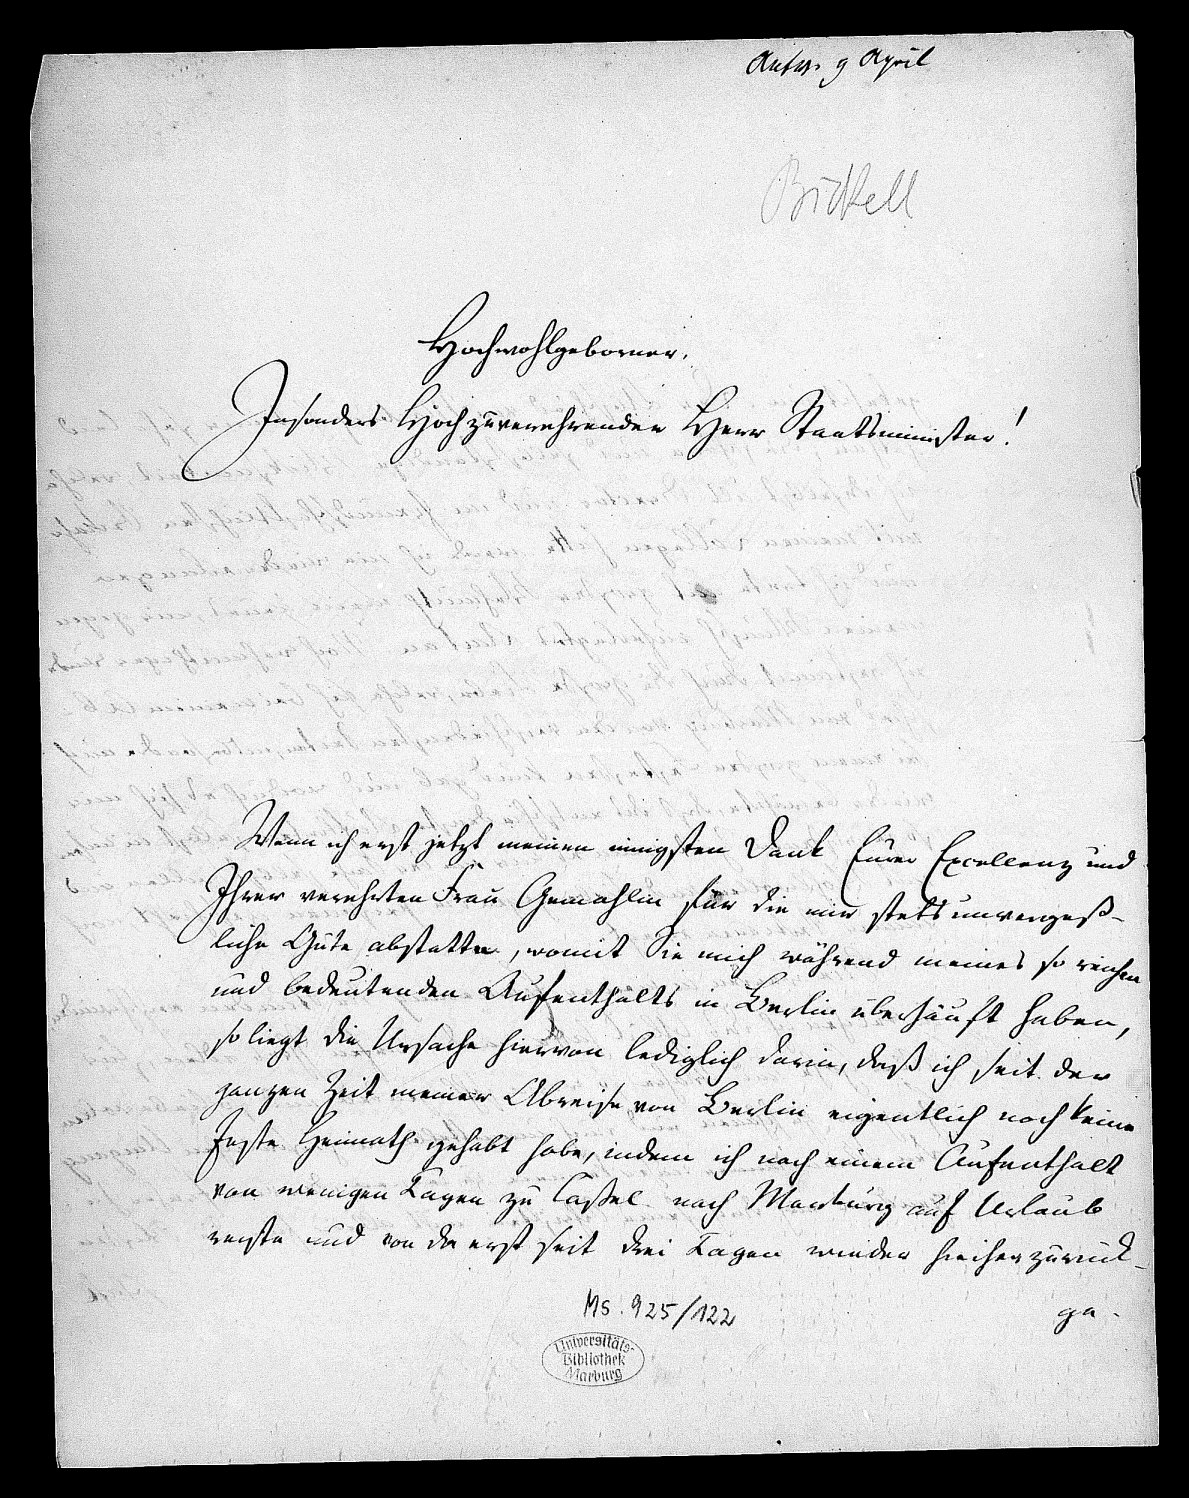 Antw. 9 April
Bickell
Hochwohlgeborner,
Insonders Hochzuverehrender Herr Staatsminister!
Wenn ich erst jetzt meinen innigsten Dank Eurer Excellenz und
Ihrer verehrten Frau Gemahlin für die mir stets unvergeß-
liche Güte abstatte, womit Sie mich während meines so reichen
und bedeutenden Aufenthalts in Berlin überhäuft haben,
so liegt die Ursache hiervon lediglich darin, daß ich seit der
ganzen Zeit meiner Abreise von Berlin eigentlich noch keine
feste Heimath gehabt habe, indem ich nach einem Aufenthalt
von wenigen Tagen zu Cassel nach Marburg auf Urlaub
reiste und von da erst seit drei Tagen wieder hieher zurück-
ge-
Ms. 925/122
Universitäts-
Bibliothek
Marburg